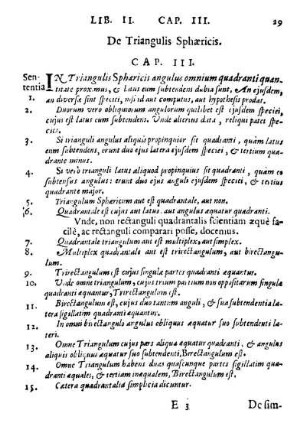 LIB. II. CAP. III. 29
De Triangulis Sphæricis.
CAP. III.
Sententia
IN Triangulis Sphæricis angulus omnium quadranti quan-
titate proximus, & latus eum subtendens dubia sunt. An ejusdem,
1. an diversæ sint speciei, nisi id aut computus, aut hypothesis prodat.
2. Duorum vero obliquorum angulorum quilibet est ejusdem speciei,
cujus est latus eum subtendens. Vnde alterius data, reliqui patet spe-
cies.
3. Si trianguli angulus aliquis propinquior sit quadranti, quàm latus
eum subtendens, erunt duo ejus latera ejusdem speciei, & tertium qua-
drante minus.
4. Si verò trianguli latus aliquod propinquius sit quadranti, quam ei
subtensus angulus: erunt duo ejus anguli ejusdem speciei, & tertius
quadrante major.
5. Triangulum Sphæricum aut est quadrantale, aut non.
6. Quadrantale est cujus aut latus aut angulus æquatur quadranti.
Vnde, non rectanguli quadrantalis scientiam æquè fa-
cilè, ac rectanguli comparari posse, docemus.
7. Quadrantale triangulum aut est multiplex, aut simplex.
8. Multiplex quadrantale aut est trirectangulum, aut birectangu-
lum.
9. Trirectangulum est cujus singula partes quadranti æquantur.
10. Vnde omne triangulum, cujus trium partium non oppositarum singulæ
quadranti æquantur, Trirectangulum est.
11. Birectangulum est, cujus duo tantum anguli, & sua subtendentia la-
tera sigillatim quadranti æquantur.
12. In omni birectangulo angulus obliquus æquatur suo subtendenti la-
teri.
13. Omne Triangulum cujus pars aliqua æquatur quadranti, & angulus
aliquis obliquus æquatur suo subtendenti, Birectangulum est.
14. Omne Triangulum habens duas quascunque partes sigillatim qua-
dranti æquales, & tertiam inæqualem, Birectangulum est.
15. Cætera quadrantalia simplicia dicuntur.
E 3 De sim-